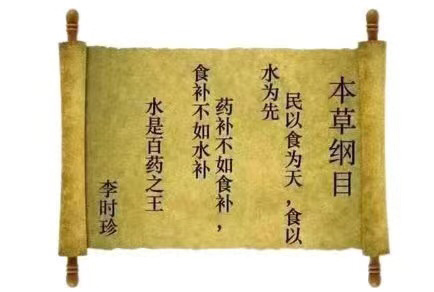 本草纲目
民以食为天,食以
水为先
药补不如食补,
食补不如水补
水是百药之王
李时珍